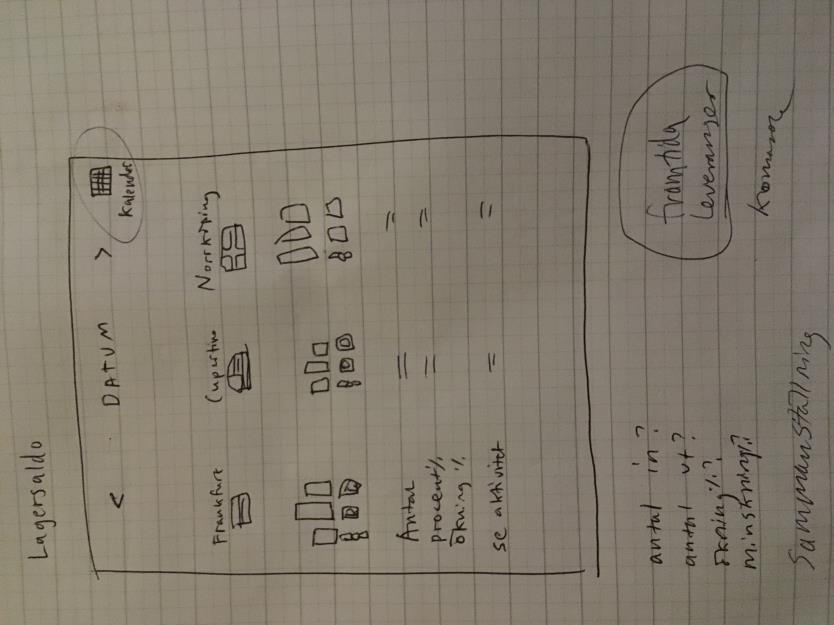 Lagersaldo
< DATUM >
Kalender
Frankfurt Cupertino Norrköping
Antal = =
procent% = =
ökning%
se aktivitet = =
antal in?
antal ut?
ökning%?
minskning%?
Framtida
leveranser
Sammanställning